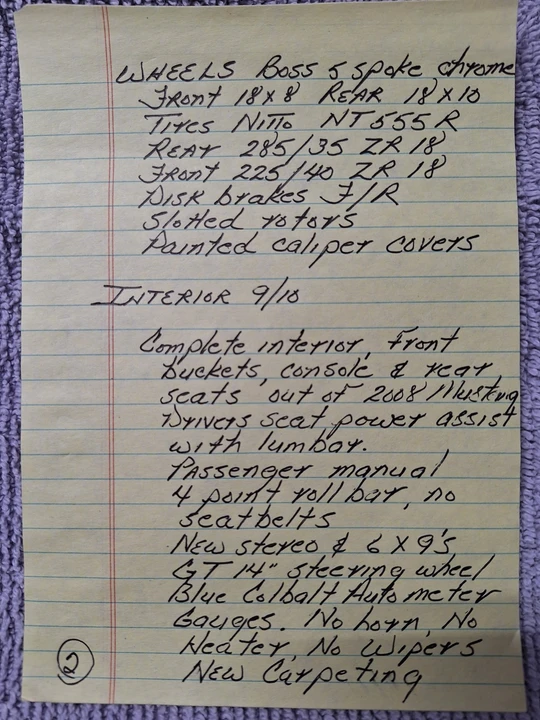 WHEELS Boss 5 spoke, chrome
Front 18x8 REAR 18x10
Tires Nitto NT555R
REAr 285/35 ZR 18
Front 225/40 ZR 18
Disk brakes F/R
Slotted rotors
Painted caliper covers
INTERIOR 9/10
Complete interior, Front
buckets, console & rear
seats out of 2008 Mustang
Drivers seat, power assist
with lumbar.
Passenger manual
4 point roll bar, no
seatbelts
New stereo & 6 X 9's
GT 14" steering wheel
Blue Colbalt Autometer
Gauges. No horn, No
Heater, No Wipers
New Carpeting
2